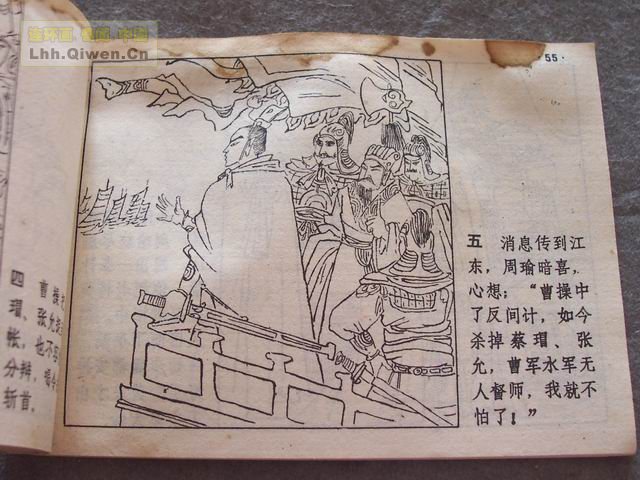 连环画
Lhh.Qiwen.Cn
·55·
五 消息传到江
东，周瑜暗喜，
心想：“曹操中
了反间计，如今
杀掉蔡瑁、张
允，曹军水军无
人督师，我就不
怕了！”
四 曹操
瑁、张允
帐，也不
分辩，喝令
斩首。